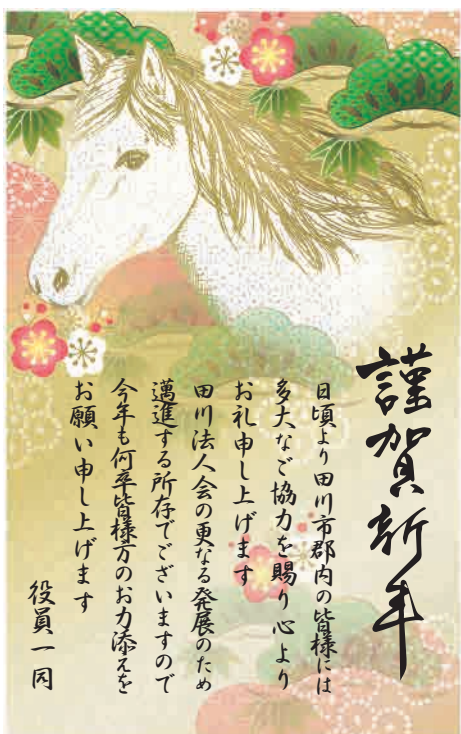 謹賀新年
日頃より田川市郡内の皆様には
多大なご協力を賜り心より
お礼申し上げます
田川法人会の更なる発展のため
邁進する所存でございますので
今年も何卒皆様方のお力添えを
お願い申し上げます
役員一同